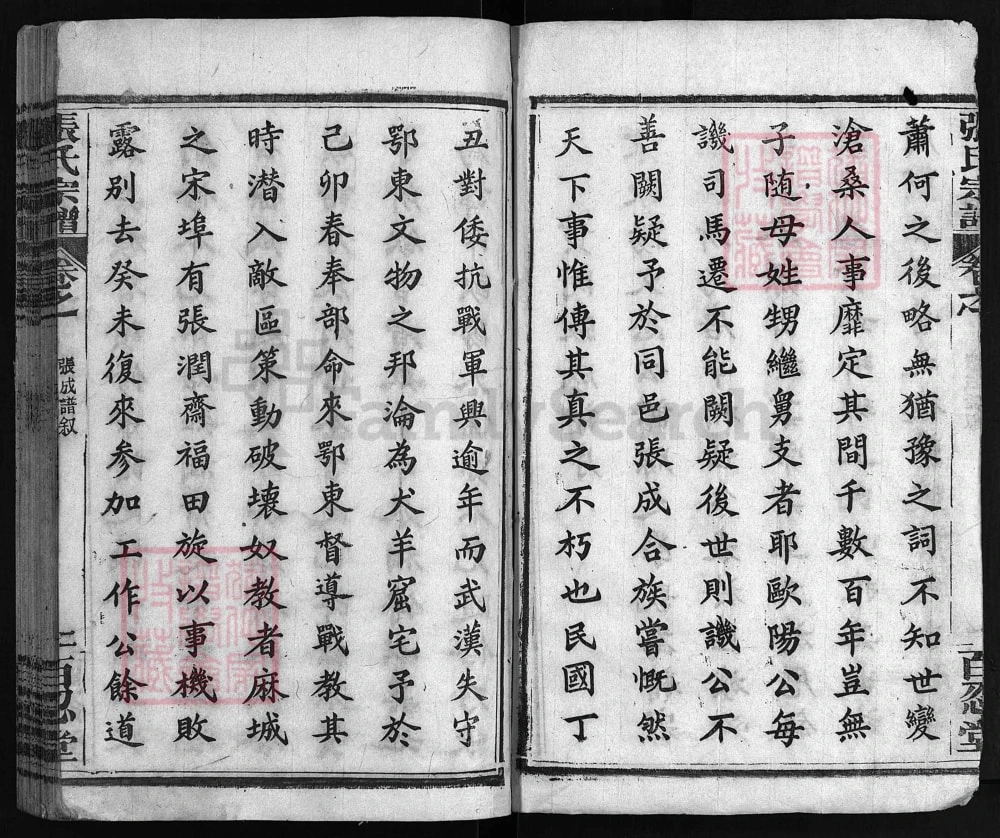 蕭何之後略無猶豫之詞不知世變
滄桑人事靡定其間千數百年豈無
子随母姓甥繼舅支者耶歐陽公每
譏司馬遷不能闕疑後世則譏公不
善闕疑予於同邑張成合族嘗慨然
天下事惟傳其真之不朽也民國丁
丑對倭抗戰軍興逾年而武漢失守
鄂東文物之邦淪為犬羊窟宅予於
己卯春奉部命來鄂東督導戰教其
時潜入敵區策動破壞奴教者麻城
之宋埠有張潤齋福田旋以事機敗
露別去癸未復來参加工作公餘道
張氏宗譜
卷之一
張成譜叙
百忍堂
FamilySearch